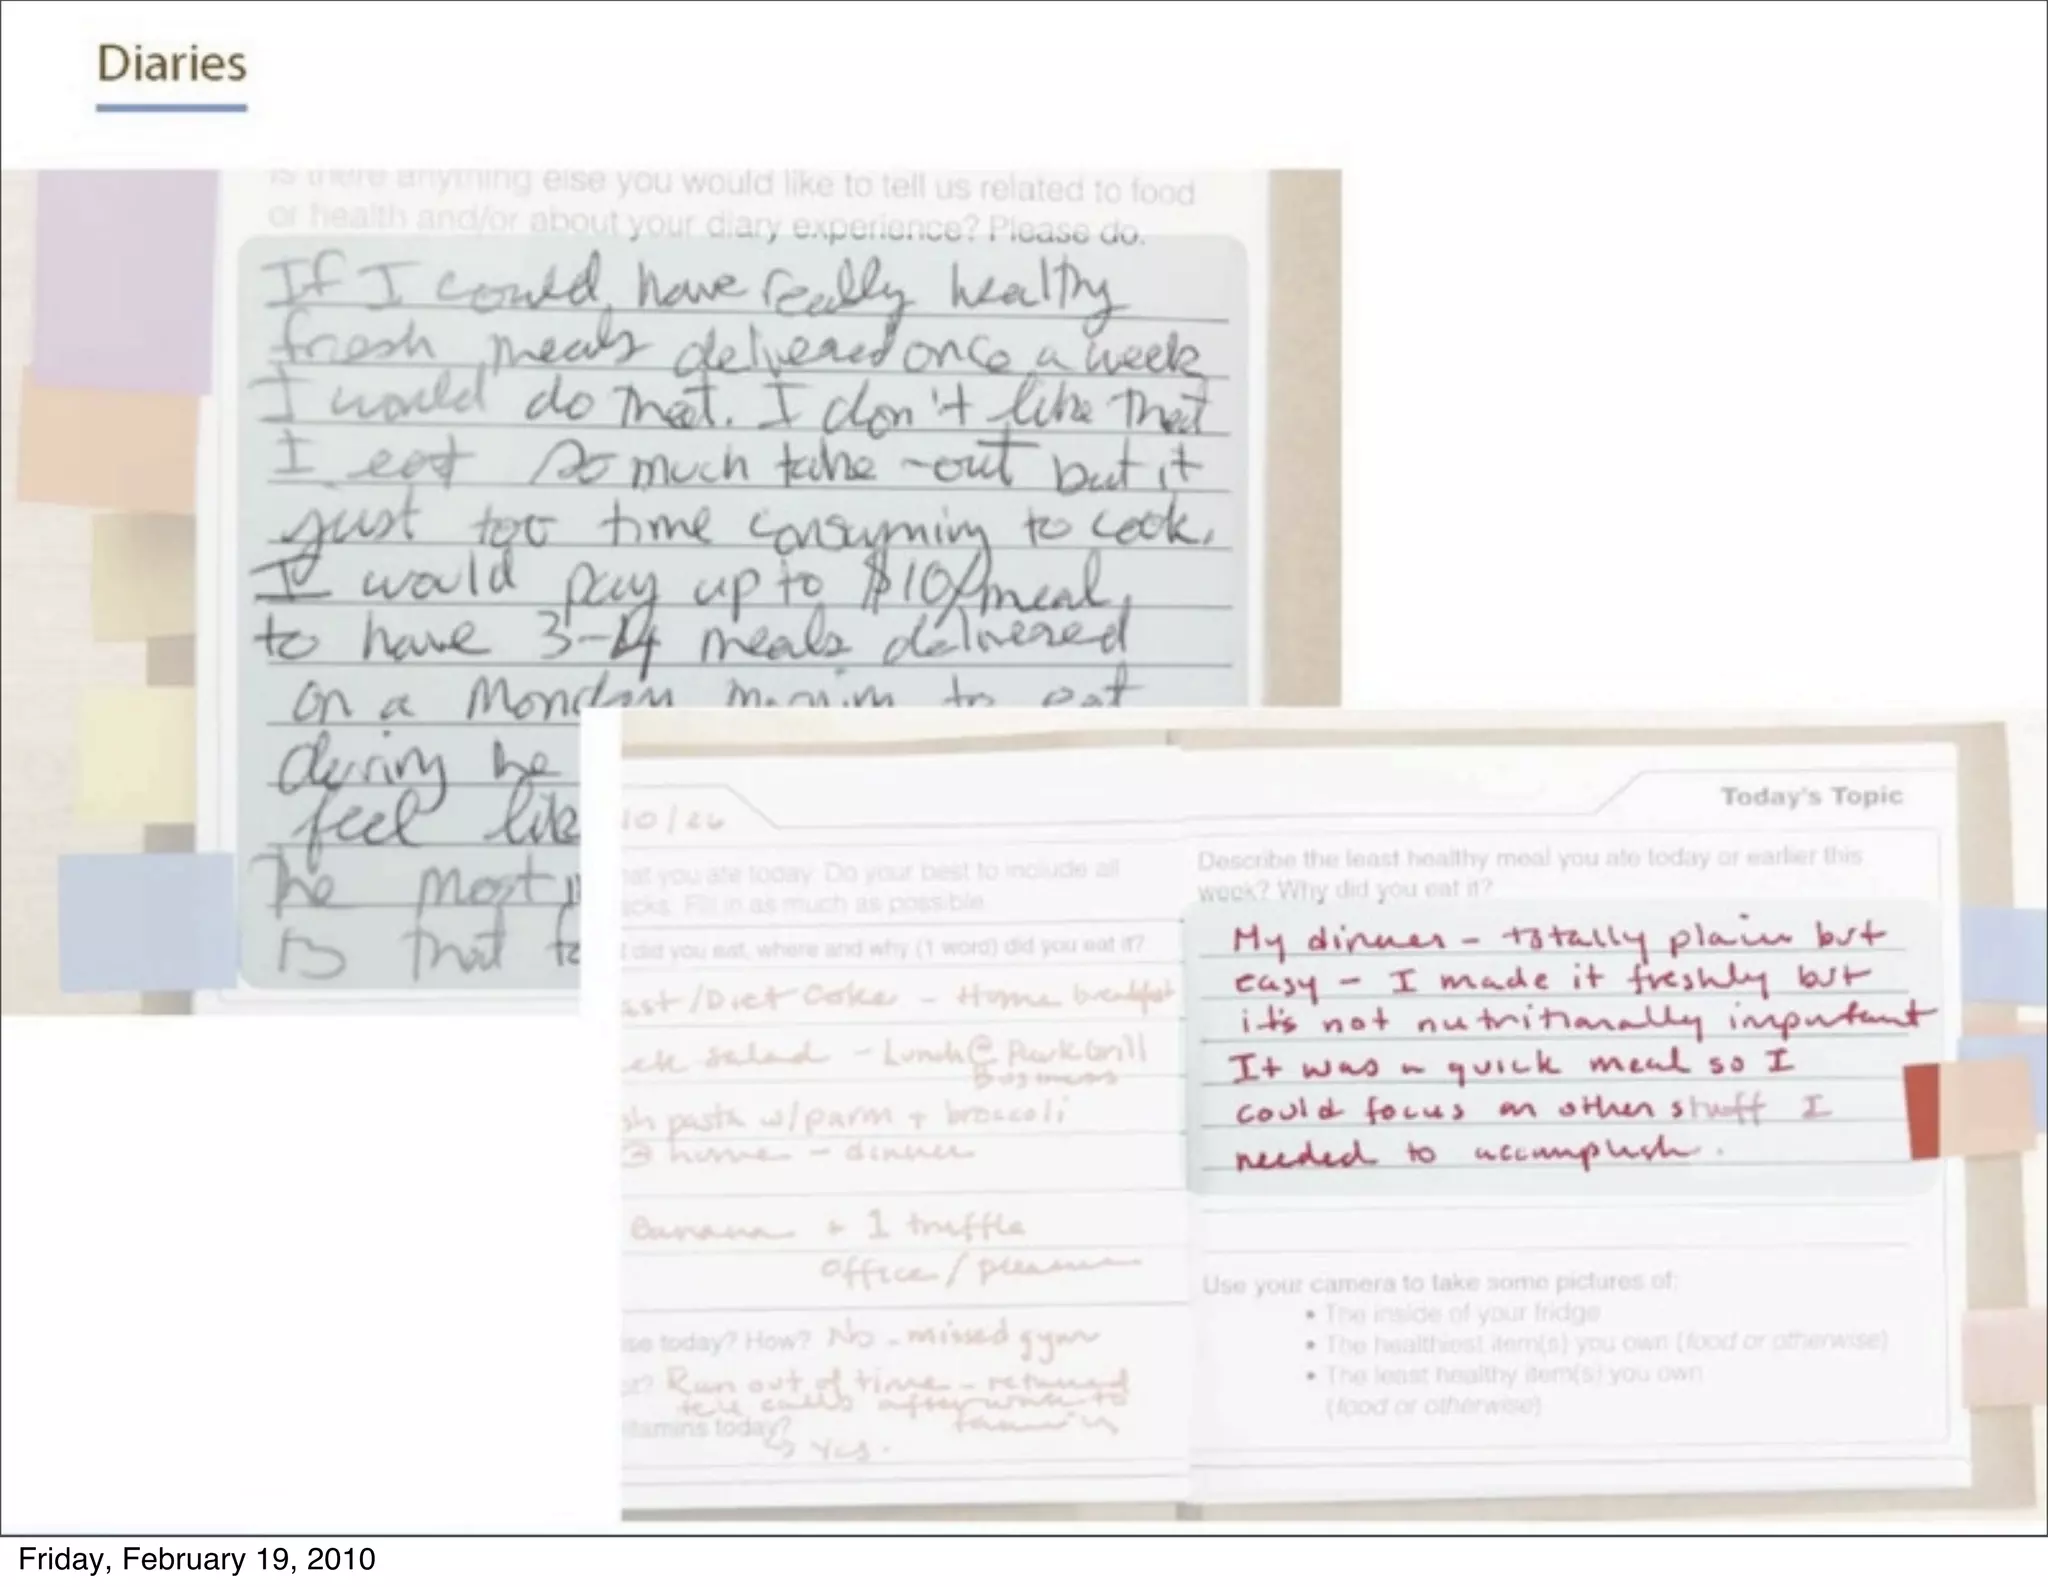 Diaries
Is there anything else you would like to tell us related to food
or health and/or about your diary experience? Please do.
If I could have really healthy
fresh meals delivered once a week
I would do that. I don't like that
I eat so much take-out but it
just too time consuming to cook.
I would pay up to $10/meal
to have 3-4 meals delivered
on a Monday to eat
during the
feel like
The most
is that
10/26
at you ate today. Do your best to include all
cks. Fill in as much as possible.
did you eat, where and why (1 word) did you eat it?
ast/Diet Coke - Home breakfast
salad - Lunch @ Park Grill
Business
sh pasta w/parm + broccoli
@ home - dinner
Banana + 1 truffle
office/pleasure
se today? How? No - missed gym
Ran out of time - returned
tele calls after work to
itamins today?
yes.
Today's Topic
Describe the least healthy meal you ate today or earlier this
week? Why did you eat it?
My dinner - totally plain but
easy - I made it freshly but
it's not nutritionally important
It was a quick meal so I
could focus on other stuff I
needed to accomplish.
Use your camera to take some pictures of:
• The inside of your fridge
• The healthiest item(s) you own (food or otherwise)
• The least healthy item(s) you own
(food or otherwise)
Friday, February 19, 2010